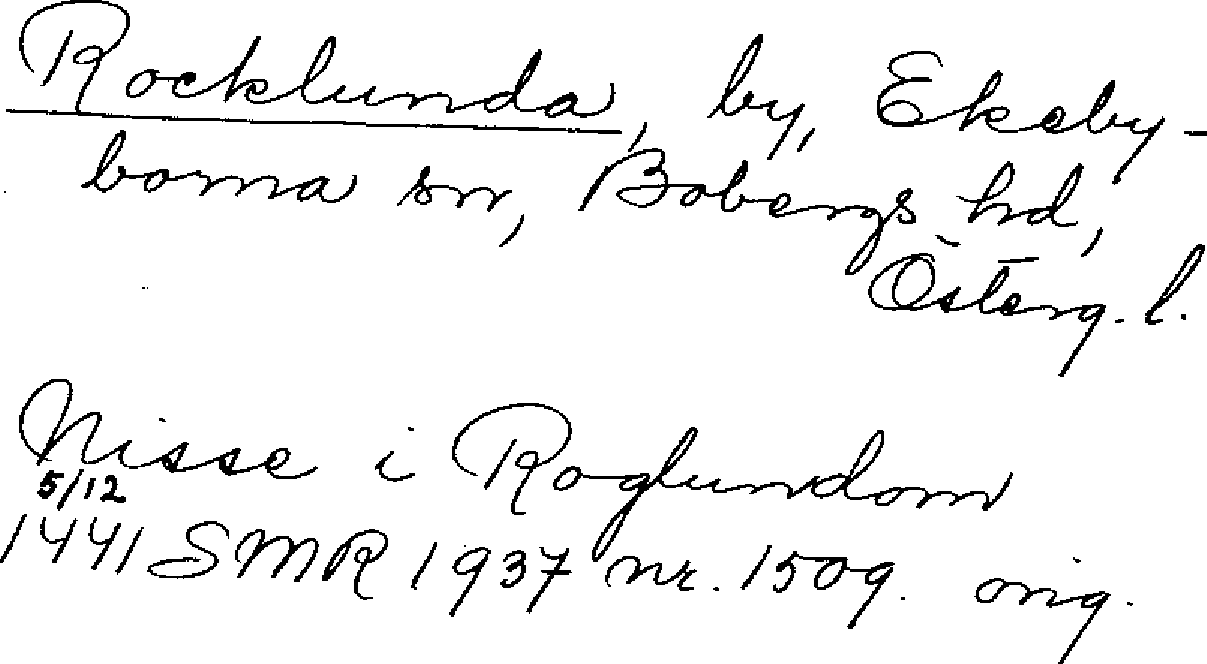 Rocklunda, by, Ekeby-
borna sn, Bobergs hd,
Österg. l.
Nisse i Roglundom
5/12
1441 SMR 1937 nr. 1509. orig.